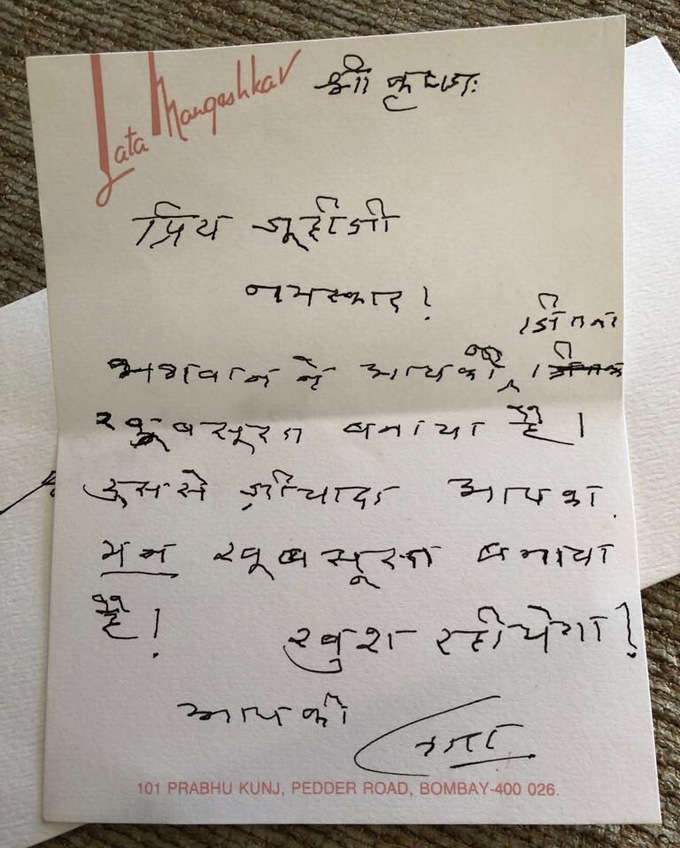 Lata Mangeshkar
श्री कृष्णः
प्रिय जूहीजी
नमस्कार!
जितना
भगवान ने आपको
खूबसूरत बनाया है।
उससे ज़ीयादा आपका
मन खूबसूरत बनाया
है! खुश रहीयेगा!
आपकी लता
101 PRABHU KUNJ, PEDDER ROAD, BOMBAY-400 026.